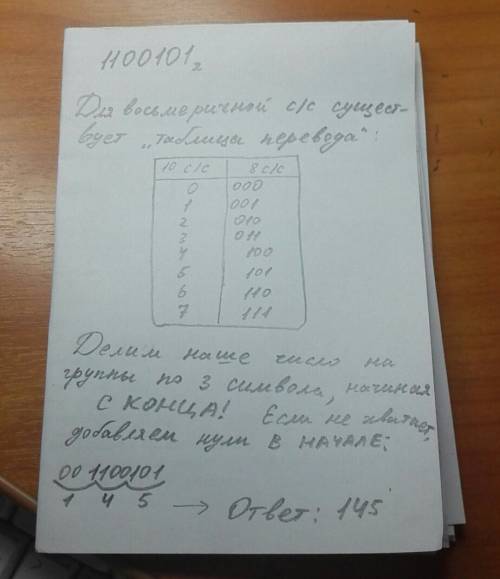 1100101₂
Для восьмеричной с/с сущест-
вует „таблицы перевода":
10 с/с 8 с/с
0 000
1 001
2 010
3 011
4 100
5 101
6 110
7 111
Делим наше число на
группы по 3 символа, начиная
С КОНЦА! Если не хватает,
добавляем нули В НАЧАЛЕ:
00 1100101
1 4 5 → Ответ: 145